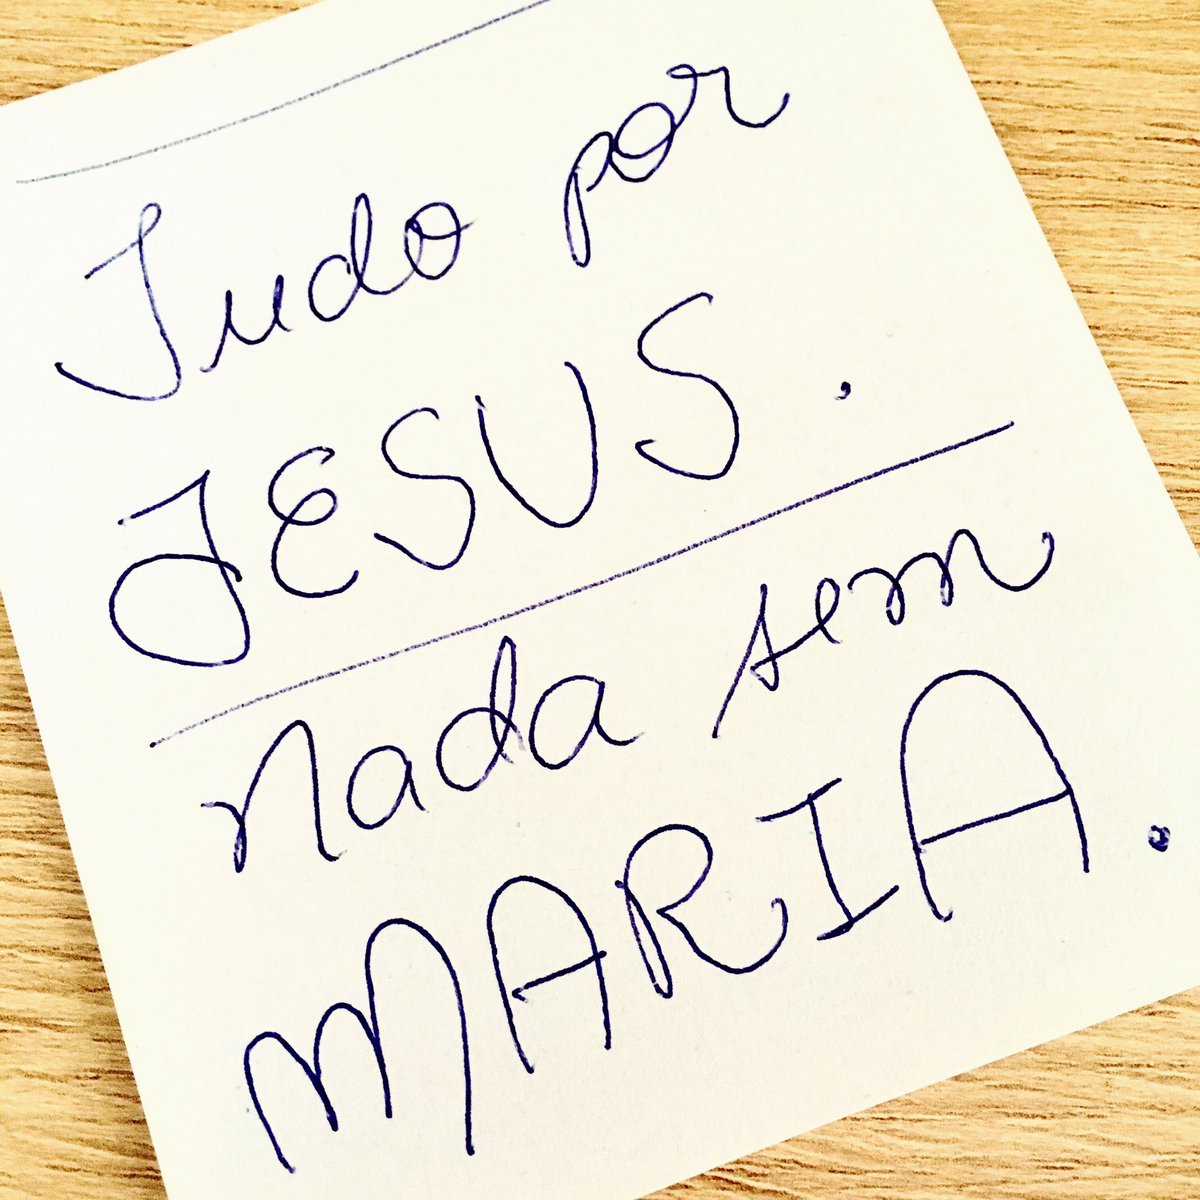 Tudo por
JESUS.
Nada sem
MARIA.